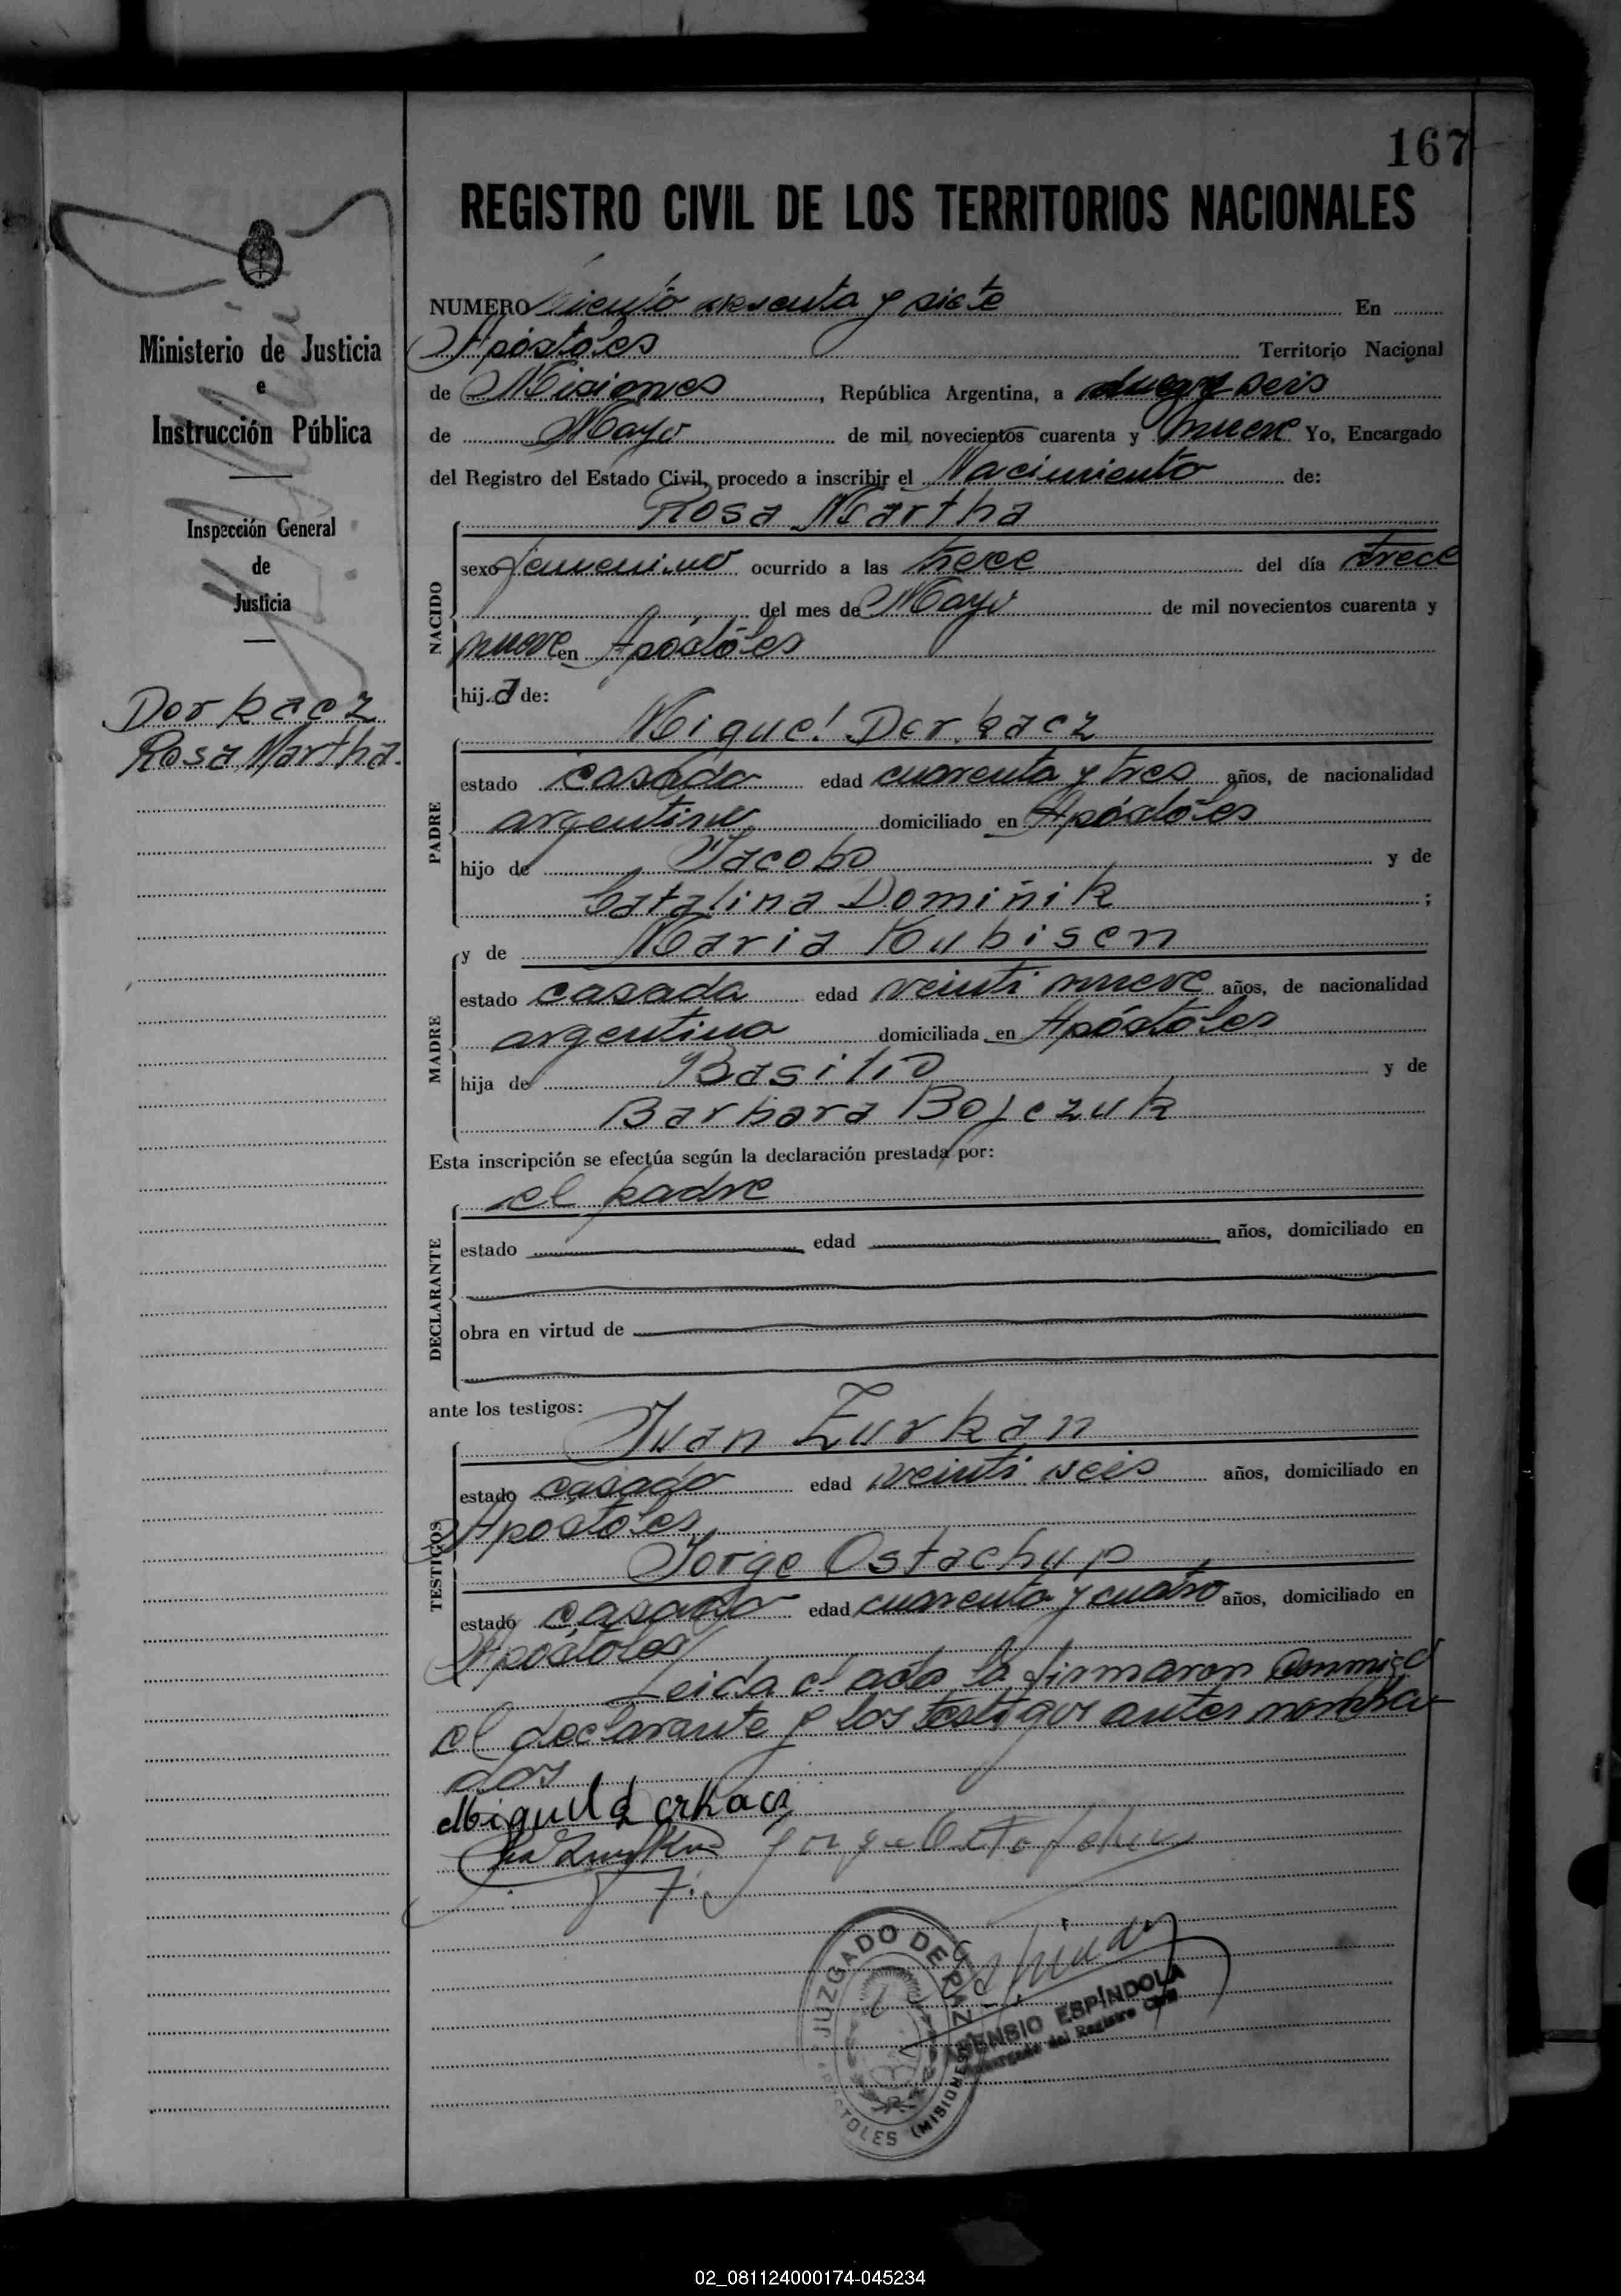 167
REGISTRO CIVIL DE LOS TERRITORIOS NACIONALES
Ministerio de Justicia
e
Instrucción Pública
Inspección General
de
Justicia
Derkacz
Rosa Martha.
NUMERO Ciento sesenta y siete En
Apóstoles Territorio Nacional
de Misiones, República Argentina, a diez y seis
de Mayo de mil novecientos cuarenta y nueve Yo, Encargado
del Registro del Estado Civil, procedo a inscribir el Nacimiento de:
Rosa Martha
NACIDO
sexo femenino ocurrido a las trece del día trece
del mes de Mayo de mil novecientos cuarenta y
nueve en Apóstoles
hij.a de:
Miguel Derkacz
PADRE
estado casado edad cuarenta y tres años, de nacionalidad
argentino domiciliado en Apóstoles
hijo de Jacobo y de
Catalina Dominik ;
y de Maria Kubisen
MADRE
estado casada edad veinti nueve años, de nacionalidad
argentina domiciliada en Apóstoles
hija de Basilio y de
Barbara Bojczuk
Esta inscripción se efectúa según la declaración prestada por:
el padre
DECLARANTE
estado edad años, domiciliado en
obra en virtud de
ante los testigos:
Juan Zurkan
TESTIGOS
estado casado edad veinti seis años, domiciliado en
Apóstoles
Jorge Ostachyp
estado casado edad cuarenta y cuatro años, domiciliado en
Apóstoles
Leida el acta la firmaron conmigo
el declarante y los testigos antes nombra
dos
Miguel Derkacz
JUZGADO DE PAZ
APOSTOLES (MISIONES)
ASENSIO ESPÍNDOLA
Encargado del Registro Civil
02_081124000174-045234